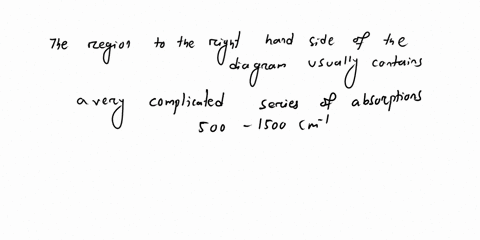 The region to the right hand side of the
diagram usually contains
a very complicated series of absorptions
500 - 1500 cm⁻¹